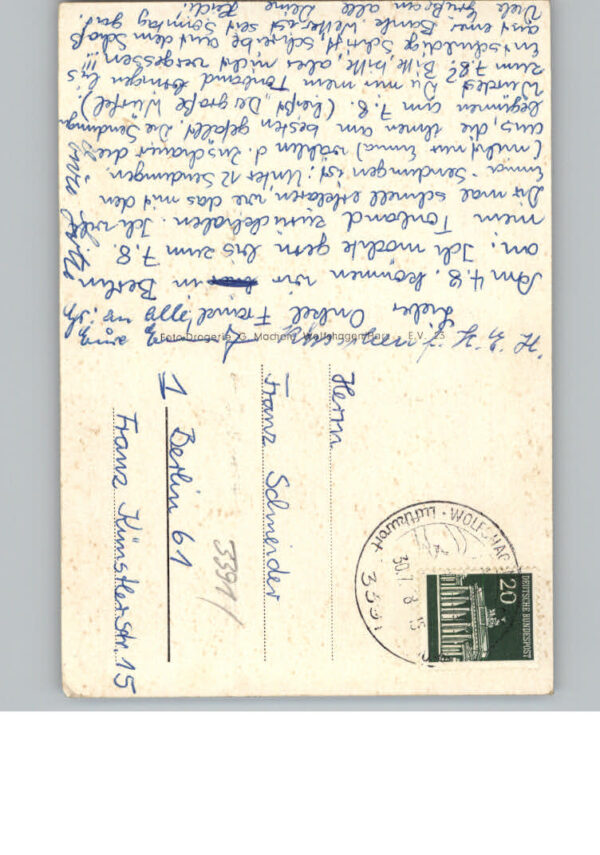 Lieber Onkel Franzel
Am 4.8. kommen wir hier in Berlin
an. Ich möchte gern bis zum 7.8.
mein Tonband zurückhaben. Ich will
Dir mal schnell erklären wie das mit den
Emma-Sendungen ist: Unter 12 Sendungen
(nicht nur Emma) wählen d. Zuschauer die
aus, die ihnen am besten gefällt. Die Sendungen
beginnen am 7.8. (heißt „Der große Würfel“)
Würdest Du mir mein Tonband bringen bis
zum 7.8? Bitte, bitte, aber nicht vergessen!!!
Entschuldige Schrift, schreibe auf dem Schoß
auf einer Bank. Wetter ist seit Sonntag gut.
Viele Grüße an alle Deine Heidi.
an alle
Foto-Drogerie G. Macheld, Wolfshagen/Harz E.V. 23
Herrn
Franz Schneider
1 Berlin 61
Franz Künstlerstr. 15
3391/
WOLFSHAGEN
Luftkurort
3391
30.7. 8-15
20
DEUTSCHE BUNDESPOST